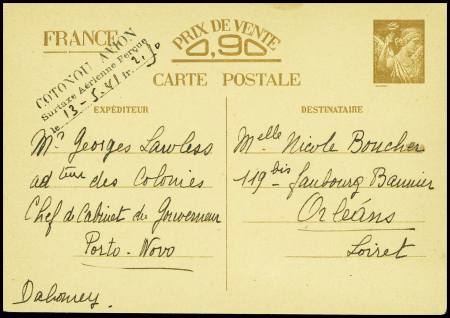 FRANCE
PRIX DE VENTE
0,90
CARTE POSTALE
COTONOU AVION
Surtaxe Aérienne Perçue
le 13-5-41 fr. 2,50
EXPÉDITEUR
Mr Georges Lawless
adteur des Colonies
Chef de Cabinet du Gouverneur
Porto-Novo
Dahomey.
DESTINATAIRE
Melle Nicole Boucher
119 bis faubourg Bannier
Orléans
Loiret